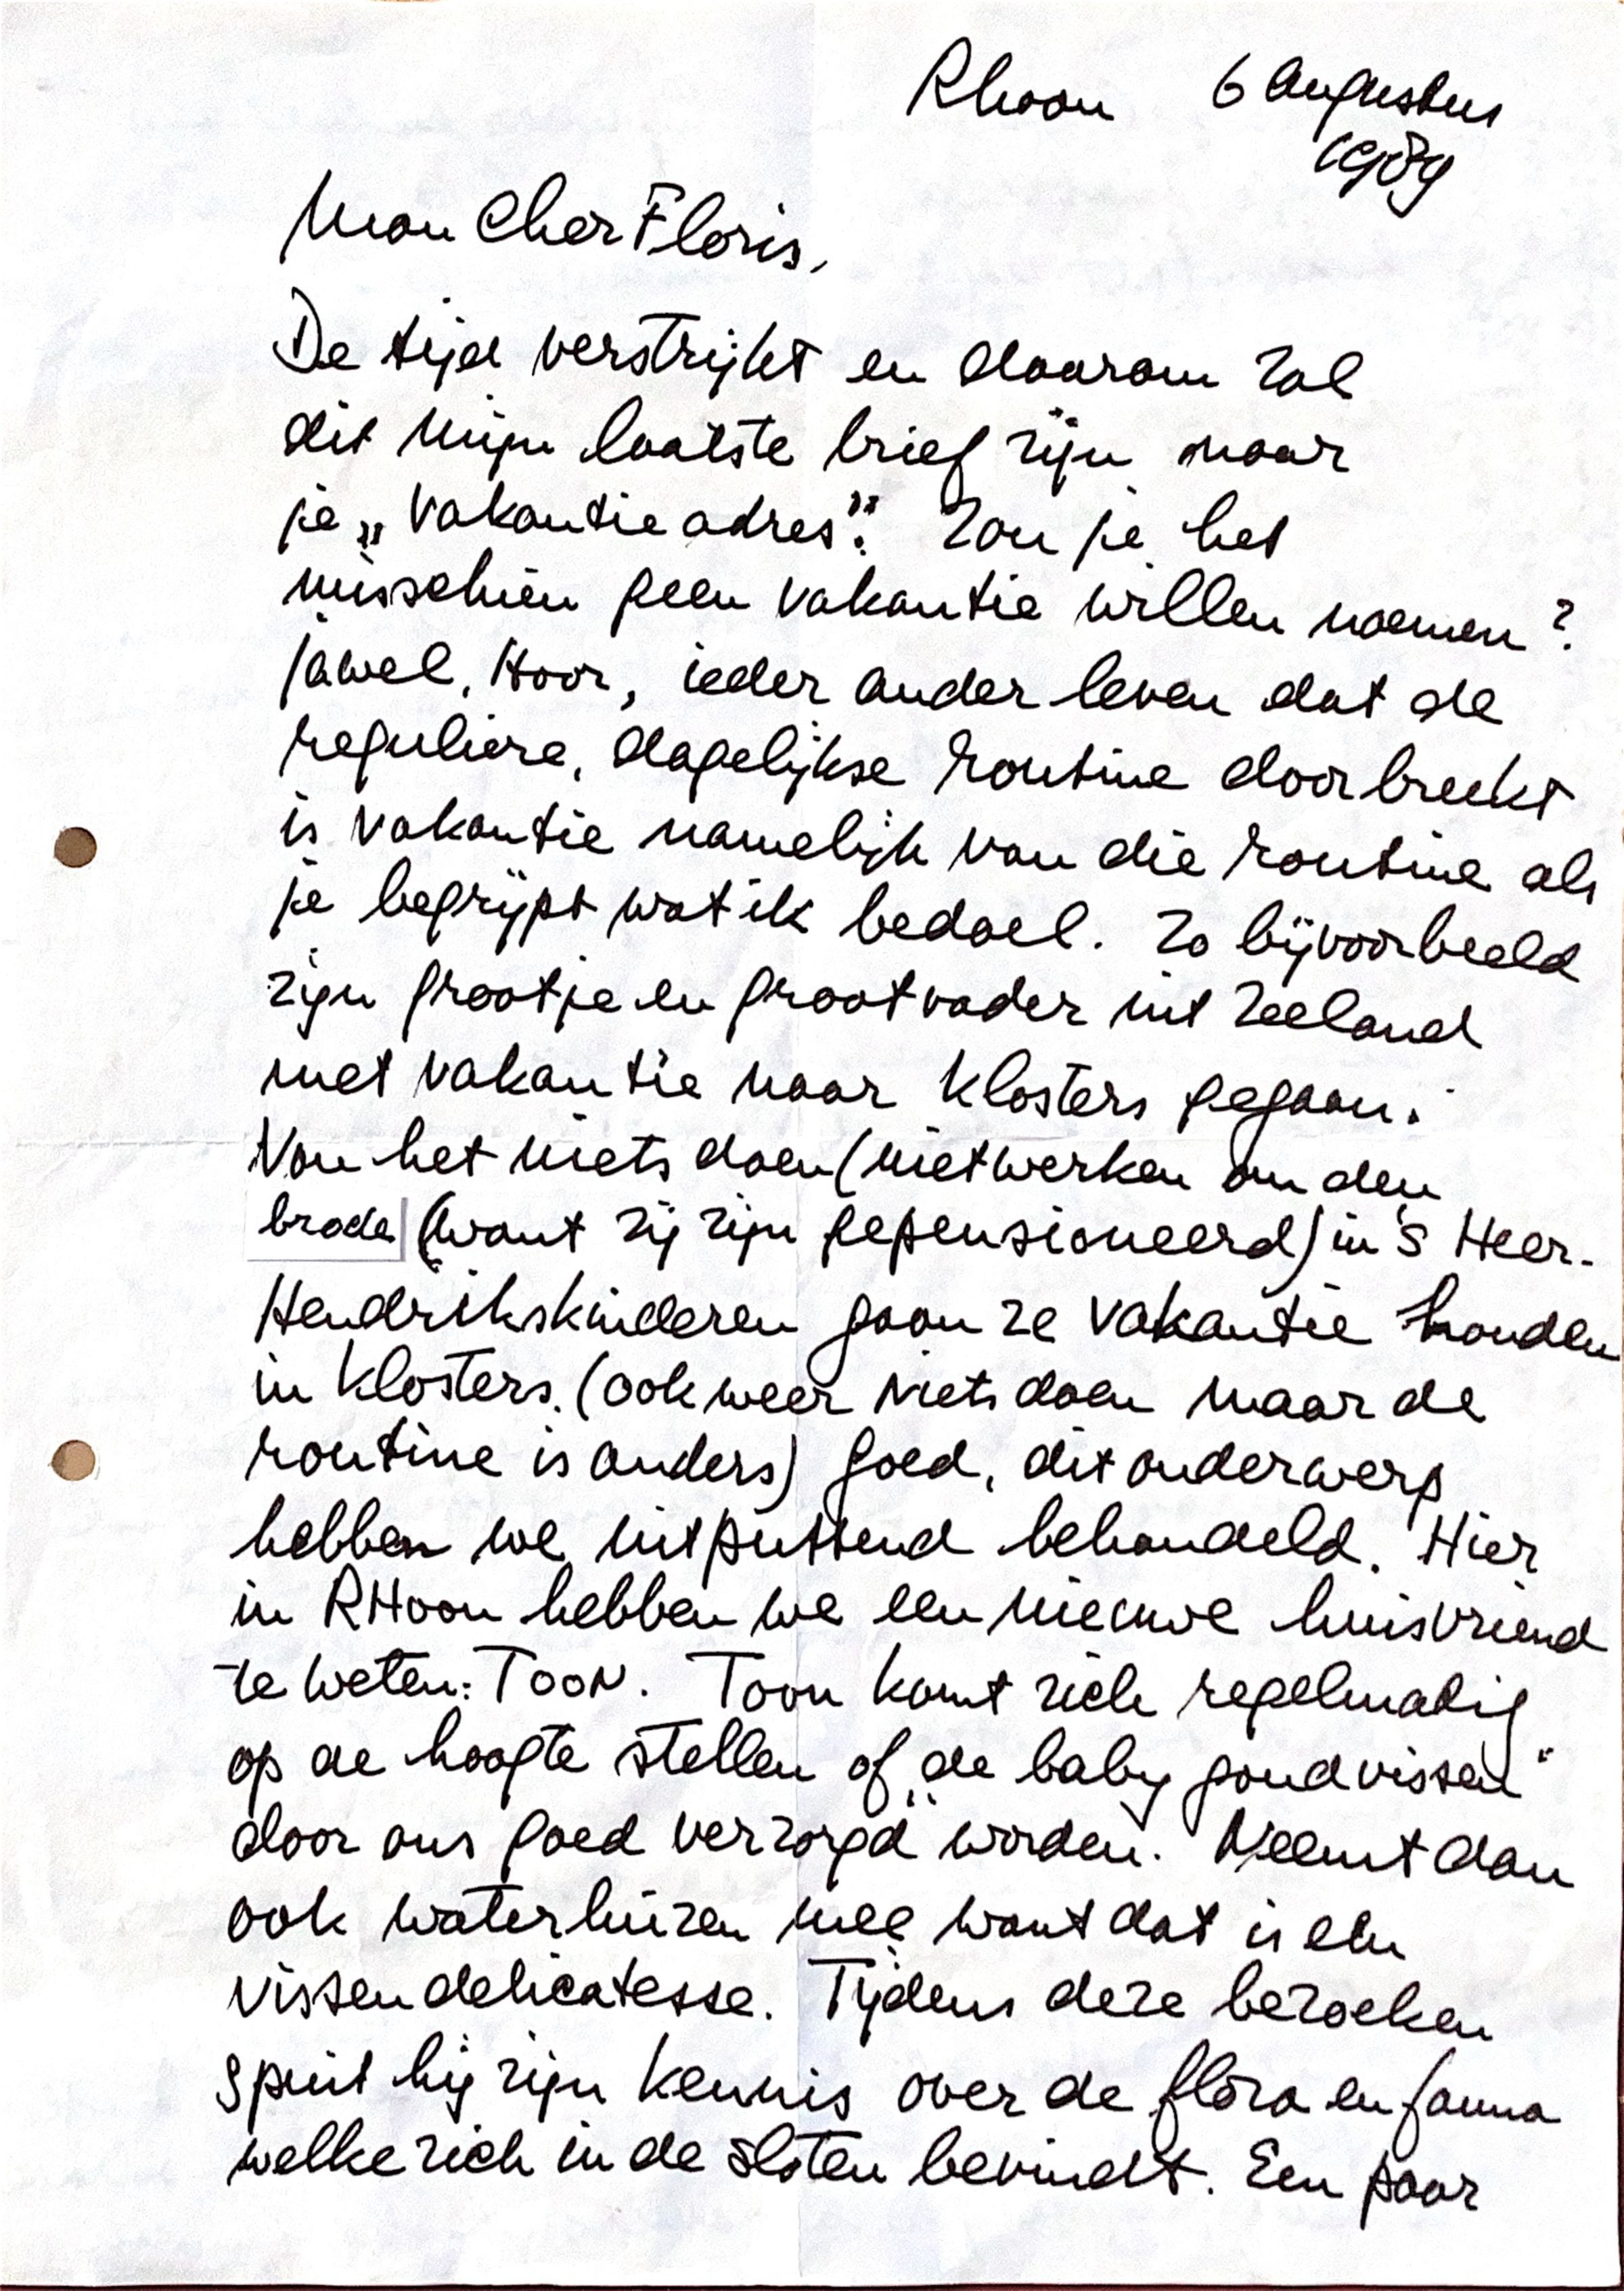 Rhoon 6 Augustus
1989
Mon Cher Floris,
De tijd verstrijkt en daarom zal
dit mijn laatste brief zijn naar
je „vakantie adres”. Zou je het
misschien geen vakantie willen noemen?
jawel, Hoor, ieder ander leven dat de
reguliere, dagelijkse routine doorbreekt
is vakantie namelijk van die routine als
je begrijpt wat ik bedoel. Zo bijvoorbeeld
zijn grootje en grootvader uit Zeeland
met vakantie naar Klosters gegaan.
Van het niets doen (niet werken om den
brode (want zij zijn gepensioneerd) in 's Heer-
Hendrikskinderen gaan ze vakantie houden
in Klosters. (ook weer niets doen maar de
routine is anders) Goed, dit onderwerp
hebben we uitputtend behandeld. Hier
in RHoon hebben we een nieuwe huisvriend
te weten: TOON. Toon komt zich regelmatig
op de hoogte stellen of „de baby goudvissen”
door ons goed "verzorgd" worden. Neemt dan
ook waterluizen mee want dat is een
vissendelicatesse. Tijdens deze bezoeken
spuit hij zijn kennis over de flora en fauna
welke zich in de sloten bevindt. Een paar